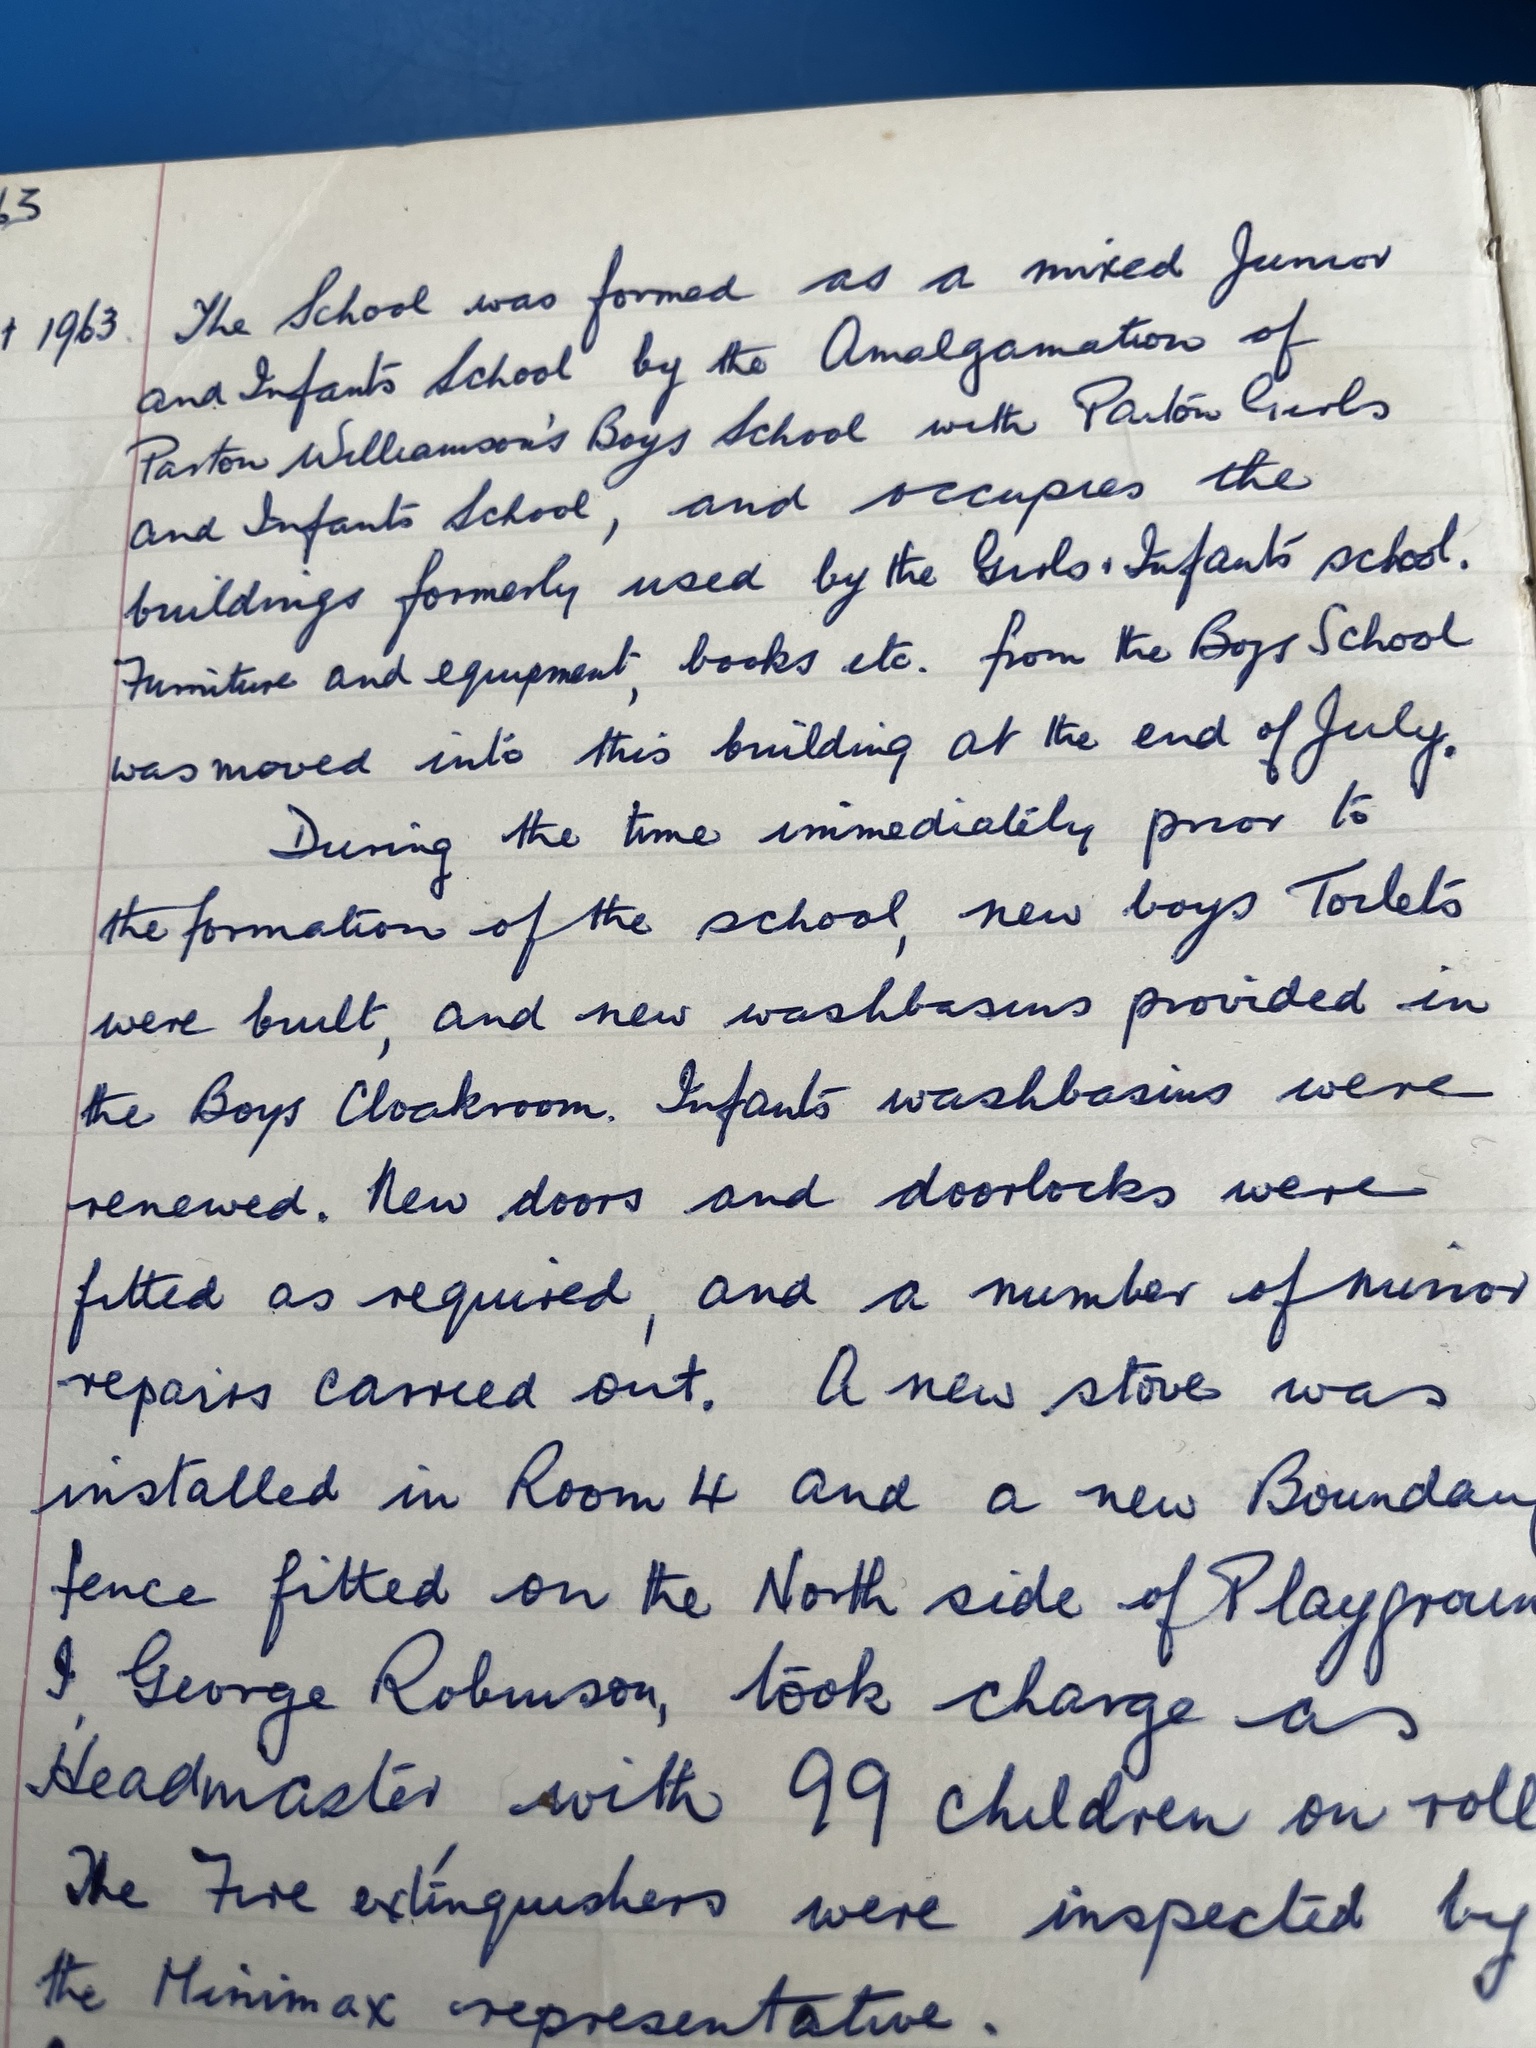 63
t 1963. The School was formed as a mixed Junior
and Infants School by the Amalgamation of
Parton Williamson's Boys School with Parton Girls
and Infants School, and occupies the
buildings formerly used by the Girls & Infants school.
Furniture and equipment, books etc. from the Boys School
was moved into this building at the end of July.
During the time immediately prior to
the formation of the school, new boys Toilets
were built, and new washbasins provided in
the Boys Cloakroom. Infants washbasins were
renewed. New doors and doorlocks were
fitted as required, and a number of minor
repairs carried out. A new stove was
installed in Room 4 and a new Boundary
fence fitted on the North side of Playgroun
I, George Robinson, took charge as
Headmaster with 99 children on roll
The Fire extinguishers were inspected by
the Minimax representative.